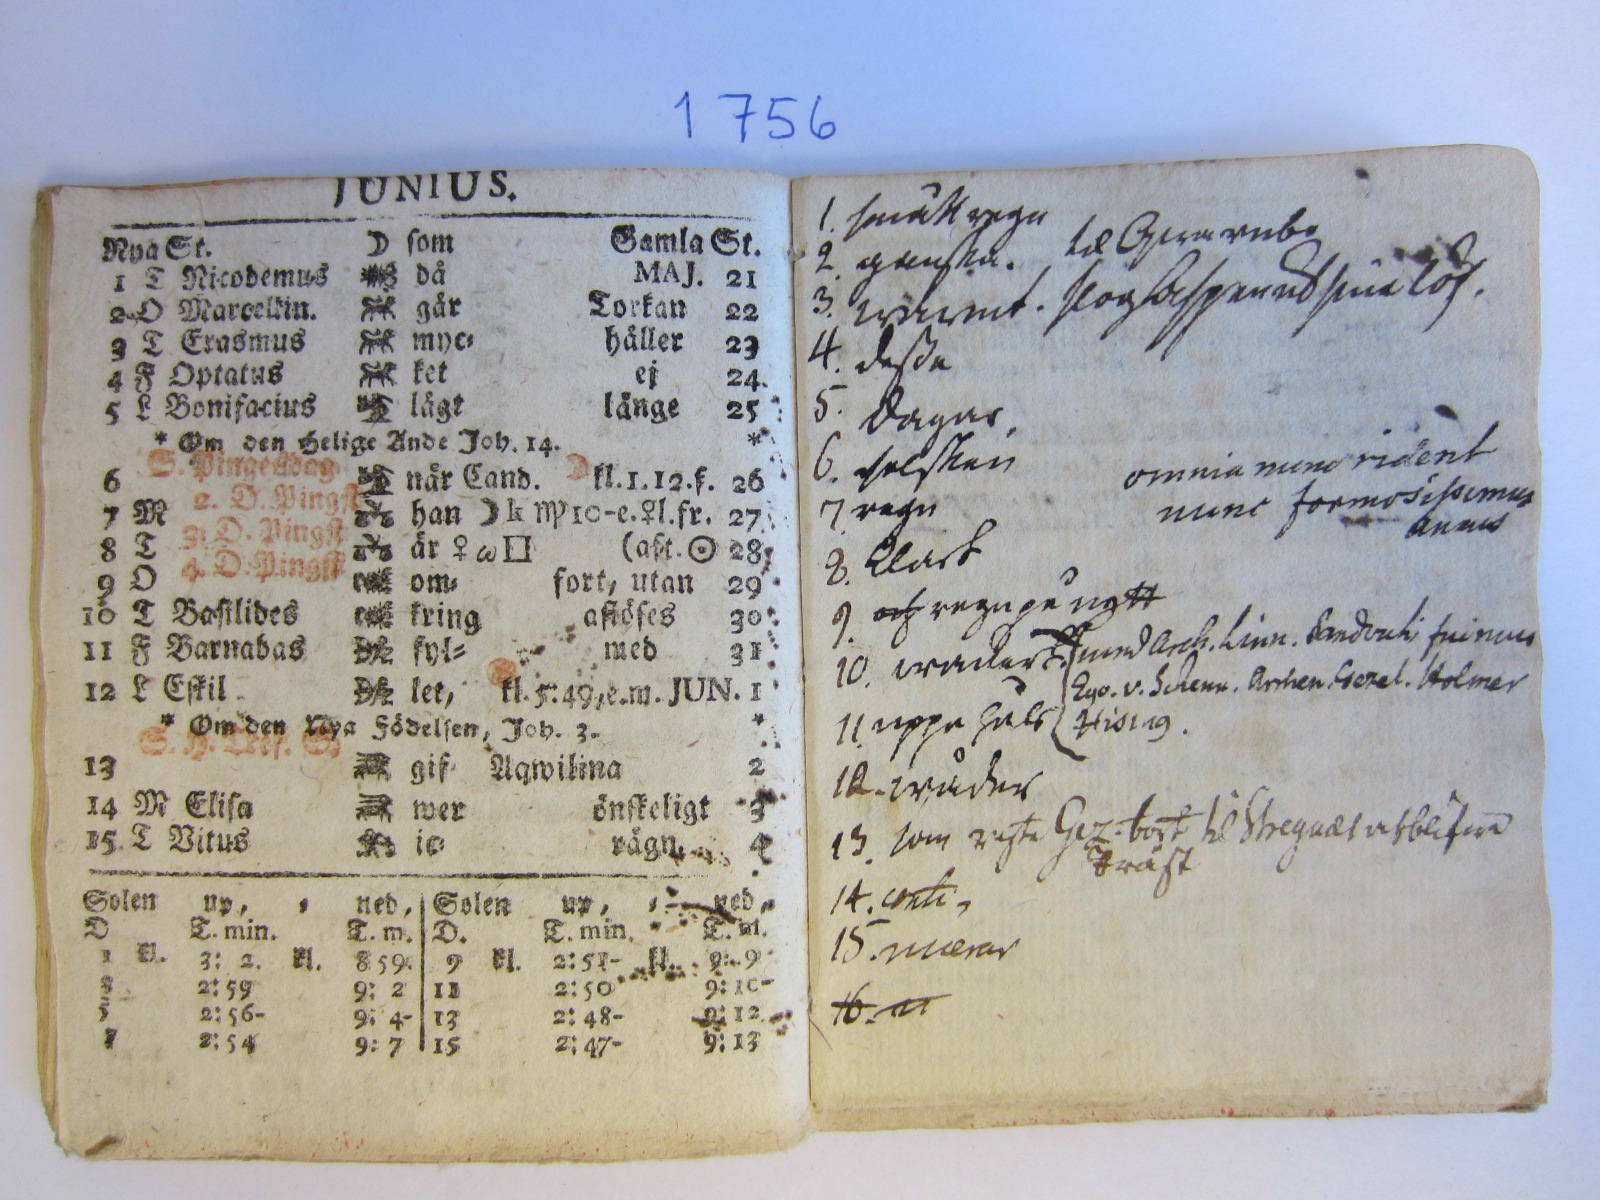 1756
JUNIUS.
Nya St. ☽ som Gamla St.
1 T Nicodemus då MAJ. 21
2 O Marcellin. går Torkan 22
3 T Erasmus myc⸗ håller 23
4 F Optatus ket ej 24.
5 L Bonifacius lågt länge 25
* Om den Helige Ande Joh. 14. *
S. Pingesdag
6 når Cand. kl. 1. 12. f. 26
2. D. Pingst
7 M han ☽ k ♍ 10-e. ♀ l. fr. 27
3. D. Pingst
8 T är ♀ ω □ (ast. ☉ 28
4. D. Pingst
9 O om⸗ fort, utan 29
10 T Basilides kring aflöses 30
11 F Barnabas fyl⸗ med 31
12 L Eskil let, kl. 5:49, e.m. JUN. 1
* Om den Nya Födelsen, Joh. 3. *
13 gif⸗ Aqwilina 2
14 M Elisa wer önskeligt 3
15 T Vitus ic⸗ rägn. 4
Solen up, , ned, Solen up, , ned,
D T. min. T. m. D. T. min. T. m.
1 kl. 3: 2. kl. 8 59. 9 kl. 2:51- kl. 9: 9
2:59 9: 2 11 2:50 9: 10-
5 2:56- 9: 4- 13 2:48- 9: 12
7 2:54 9: 7 15 2:47- 9: 13
1. smått regn
2. ganska. til
3. warmt.
4. dessa
5. dagar,
6. solsken omnia nunc rident
7. regn nunc formosissimus
annus
8. klart
9. och regn på nytt
10. med Arch. Linn. fuimus
Ego. v. Holmer
11. uppehåls Hising.
12. wäder
13. som reste Gez. bort til Stregnäs at blifwa
Präst
14. conti-
15. nuerar
16. n